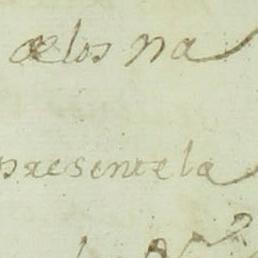 delos na
presente la